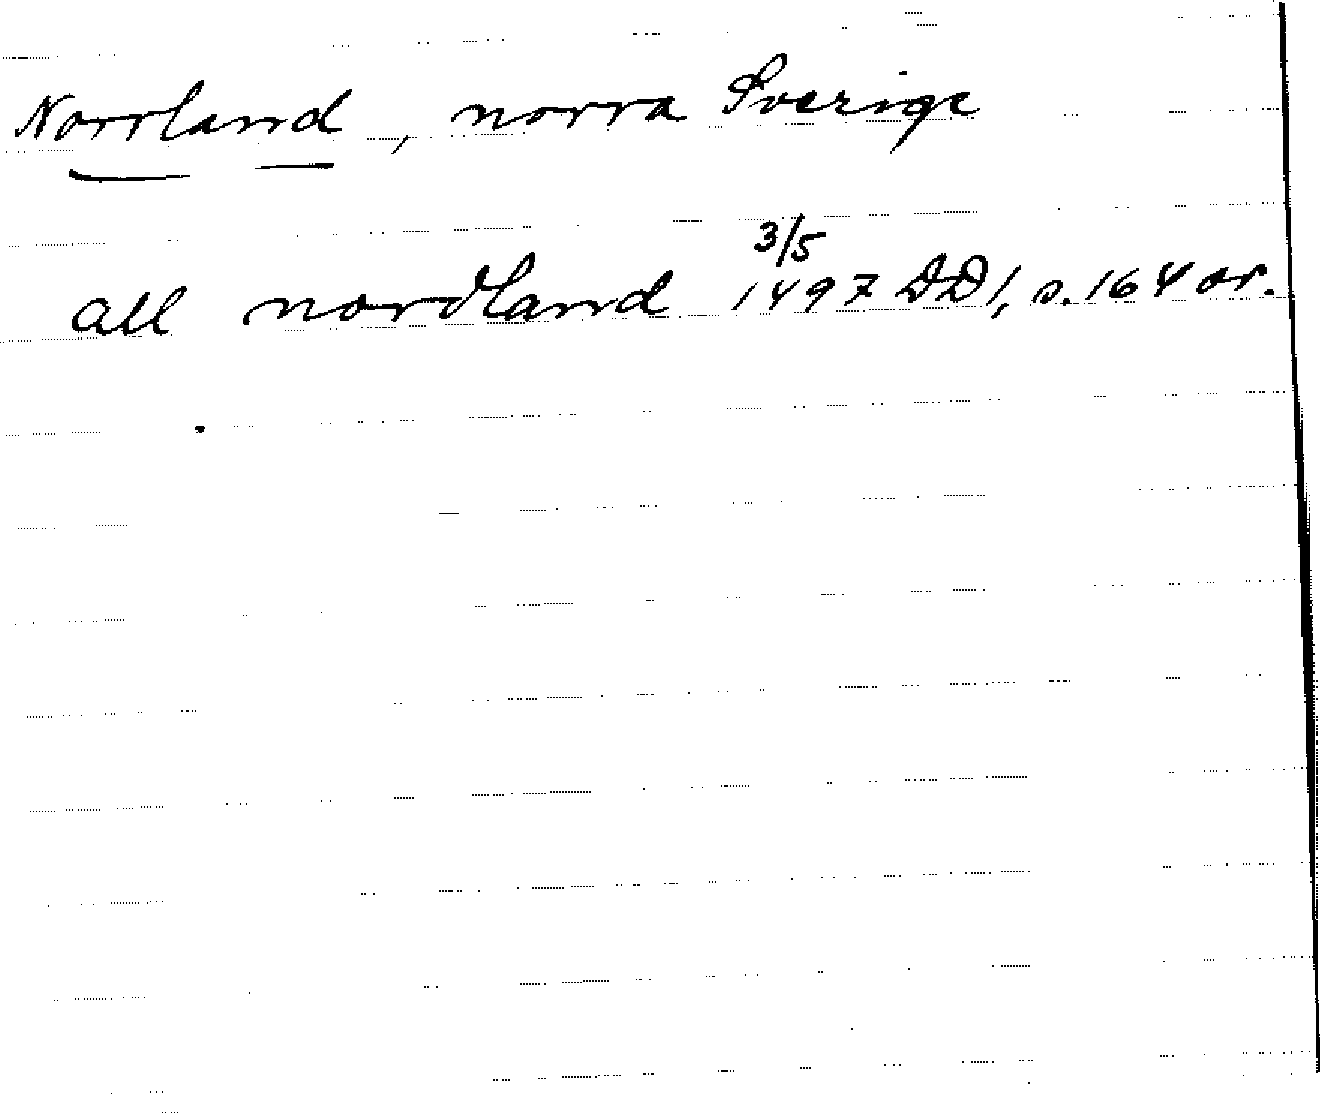 Norrland, norra Sverige
all nordland 3/5 1497 DD1, s. 164 or.